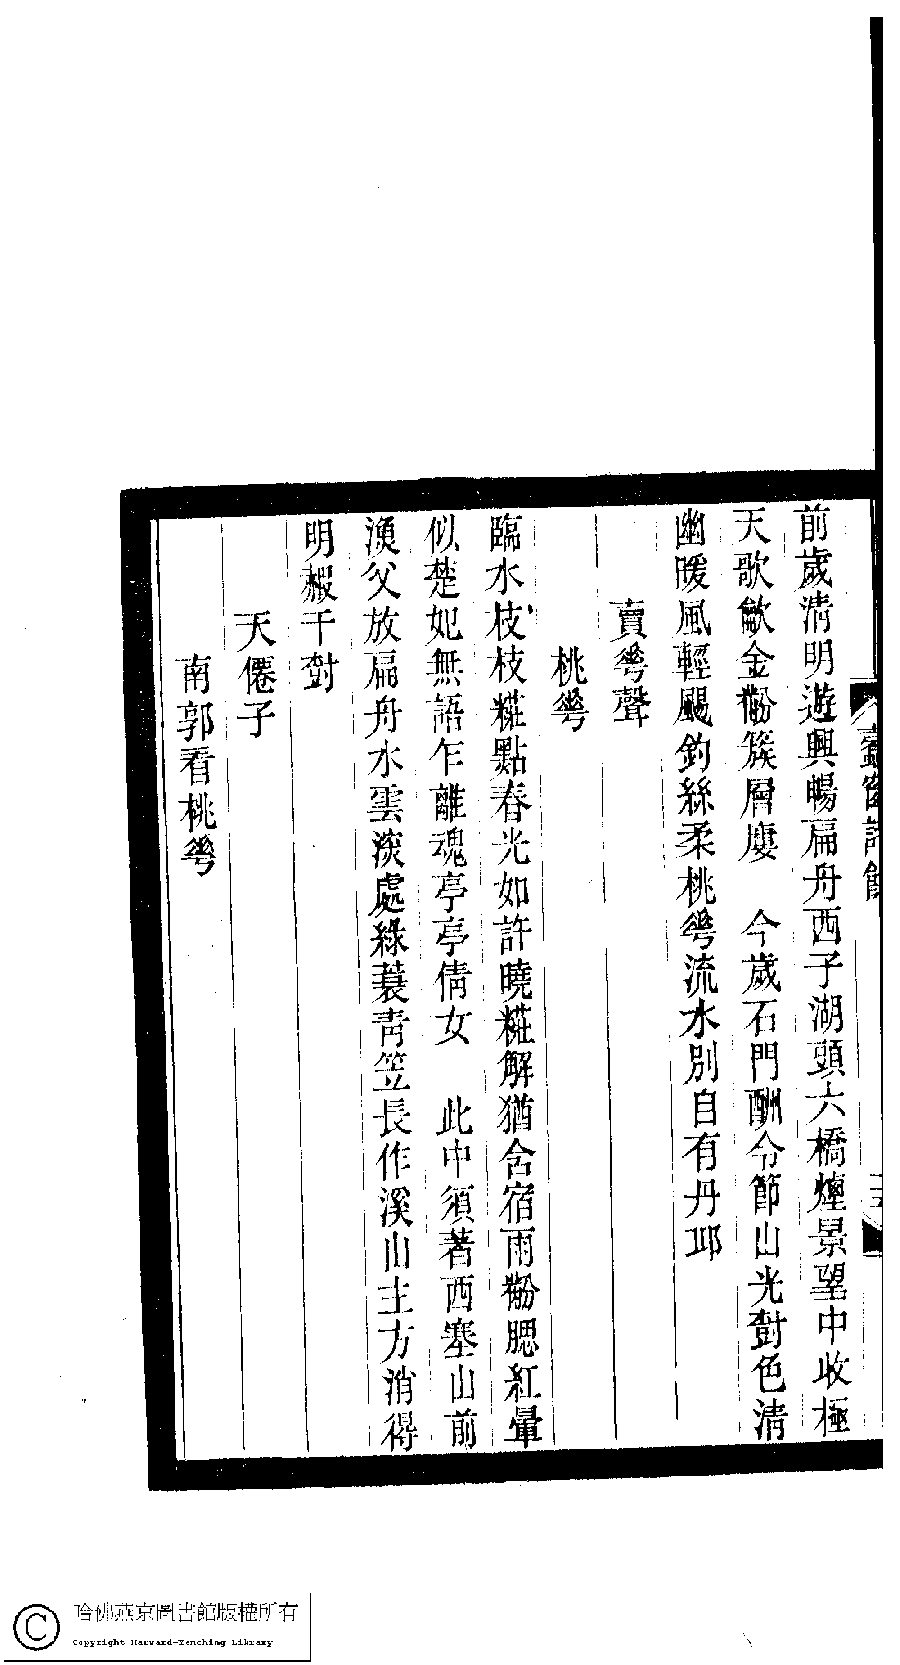 前歲清明遊興暢扁舟西子湖頭六橋煙景望中收極
天歌歈金㸮簇層廔　今歲石門酬令節山光對色清
幽暖風輕颺釣絲柔桃𠌶流水別自有丹邱
賣𠌶聲
桃𠌶
臨水枝枝糚點春光如許曉糚解猶含宿雨㸮腮紅暈
似楚妃無語乍離魂亭亭倩女　此中須著西塞山前
漁父放扁舟水雲深處綠蓑青笠長作溪山主方消得
明赧千對
天僊子
南郭看桃𠌶
哈佛燕京圖書館版權所有
Copyright Harvard-Yenching Library